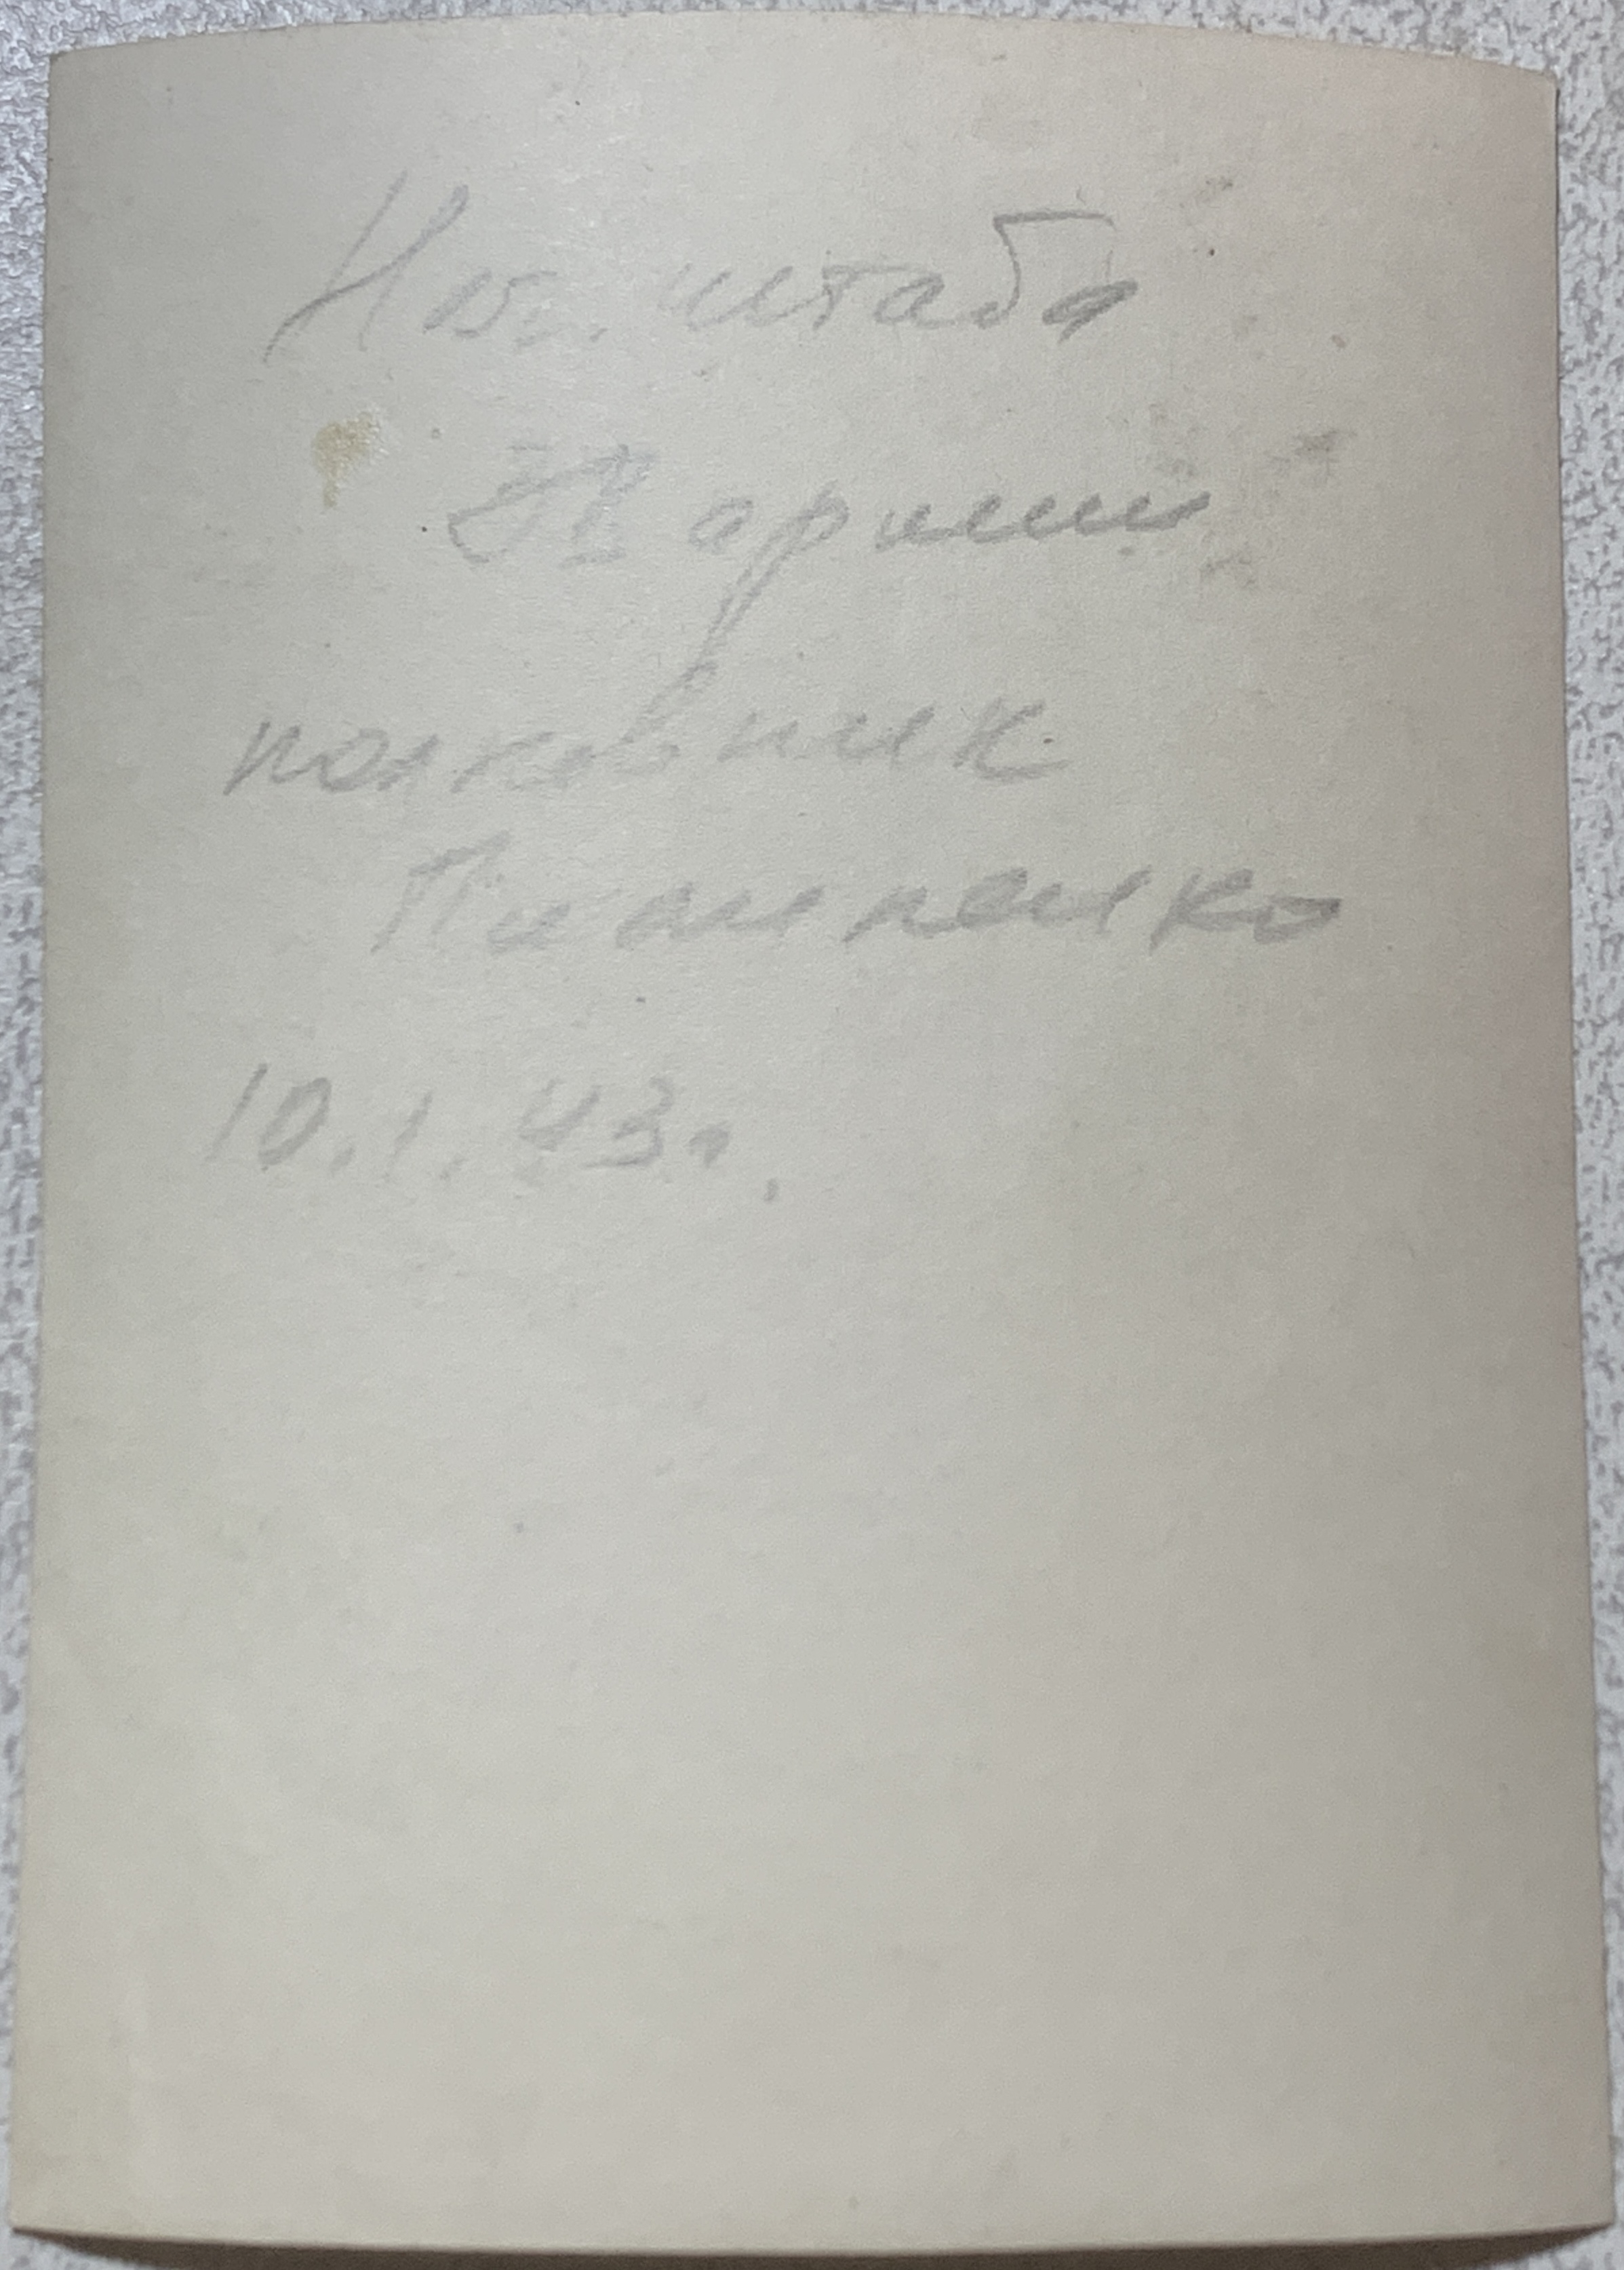 Нач. штаба
армии
полковник
10.1.43г.